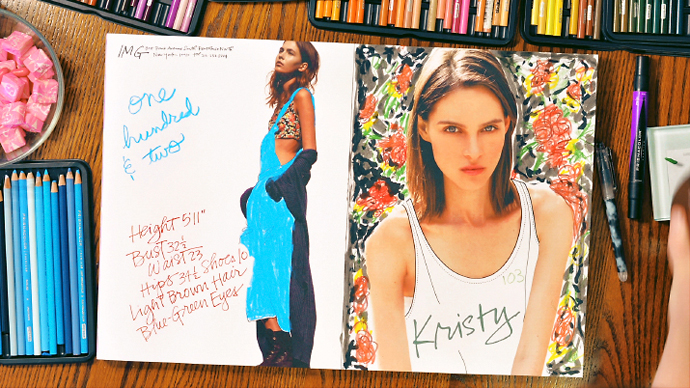 IMG
one
hundred
& two
Height 5'11"
Bust 32½
Waist 23
Hips 34½ Shoes 10
Light Brown Hair
Blue-Green Eyes
103
Kristy
PRISMACOLOR